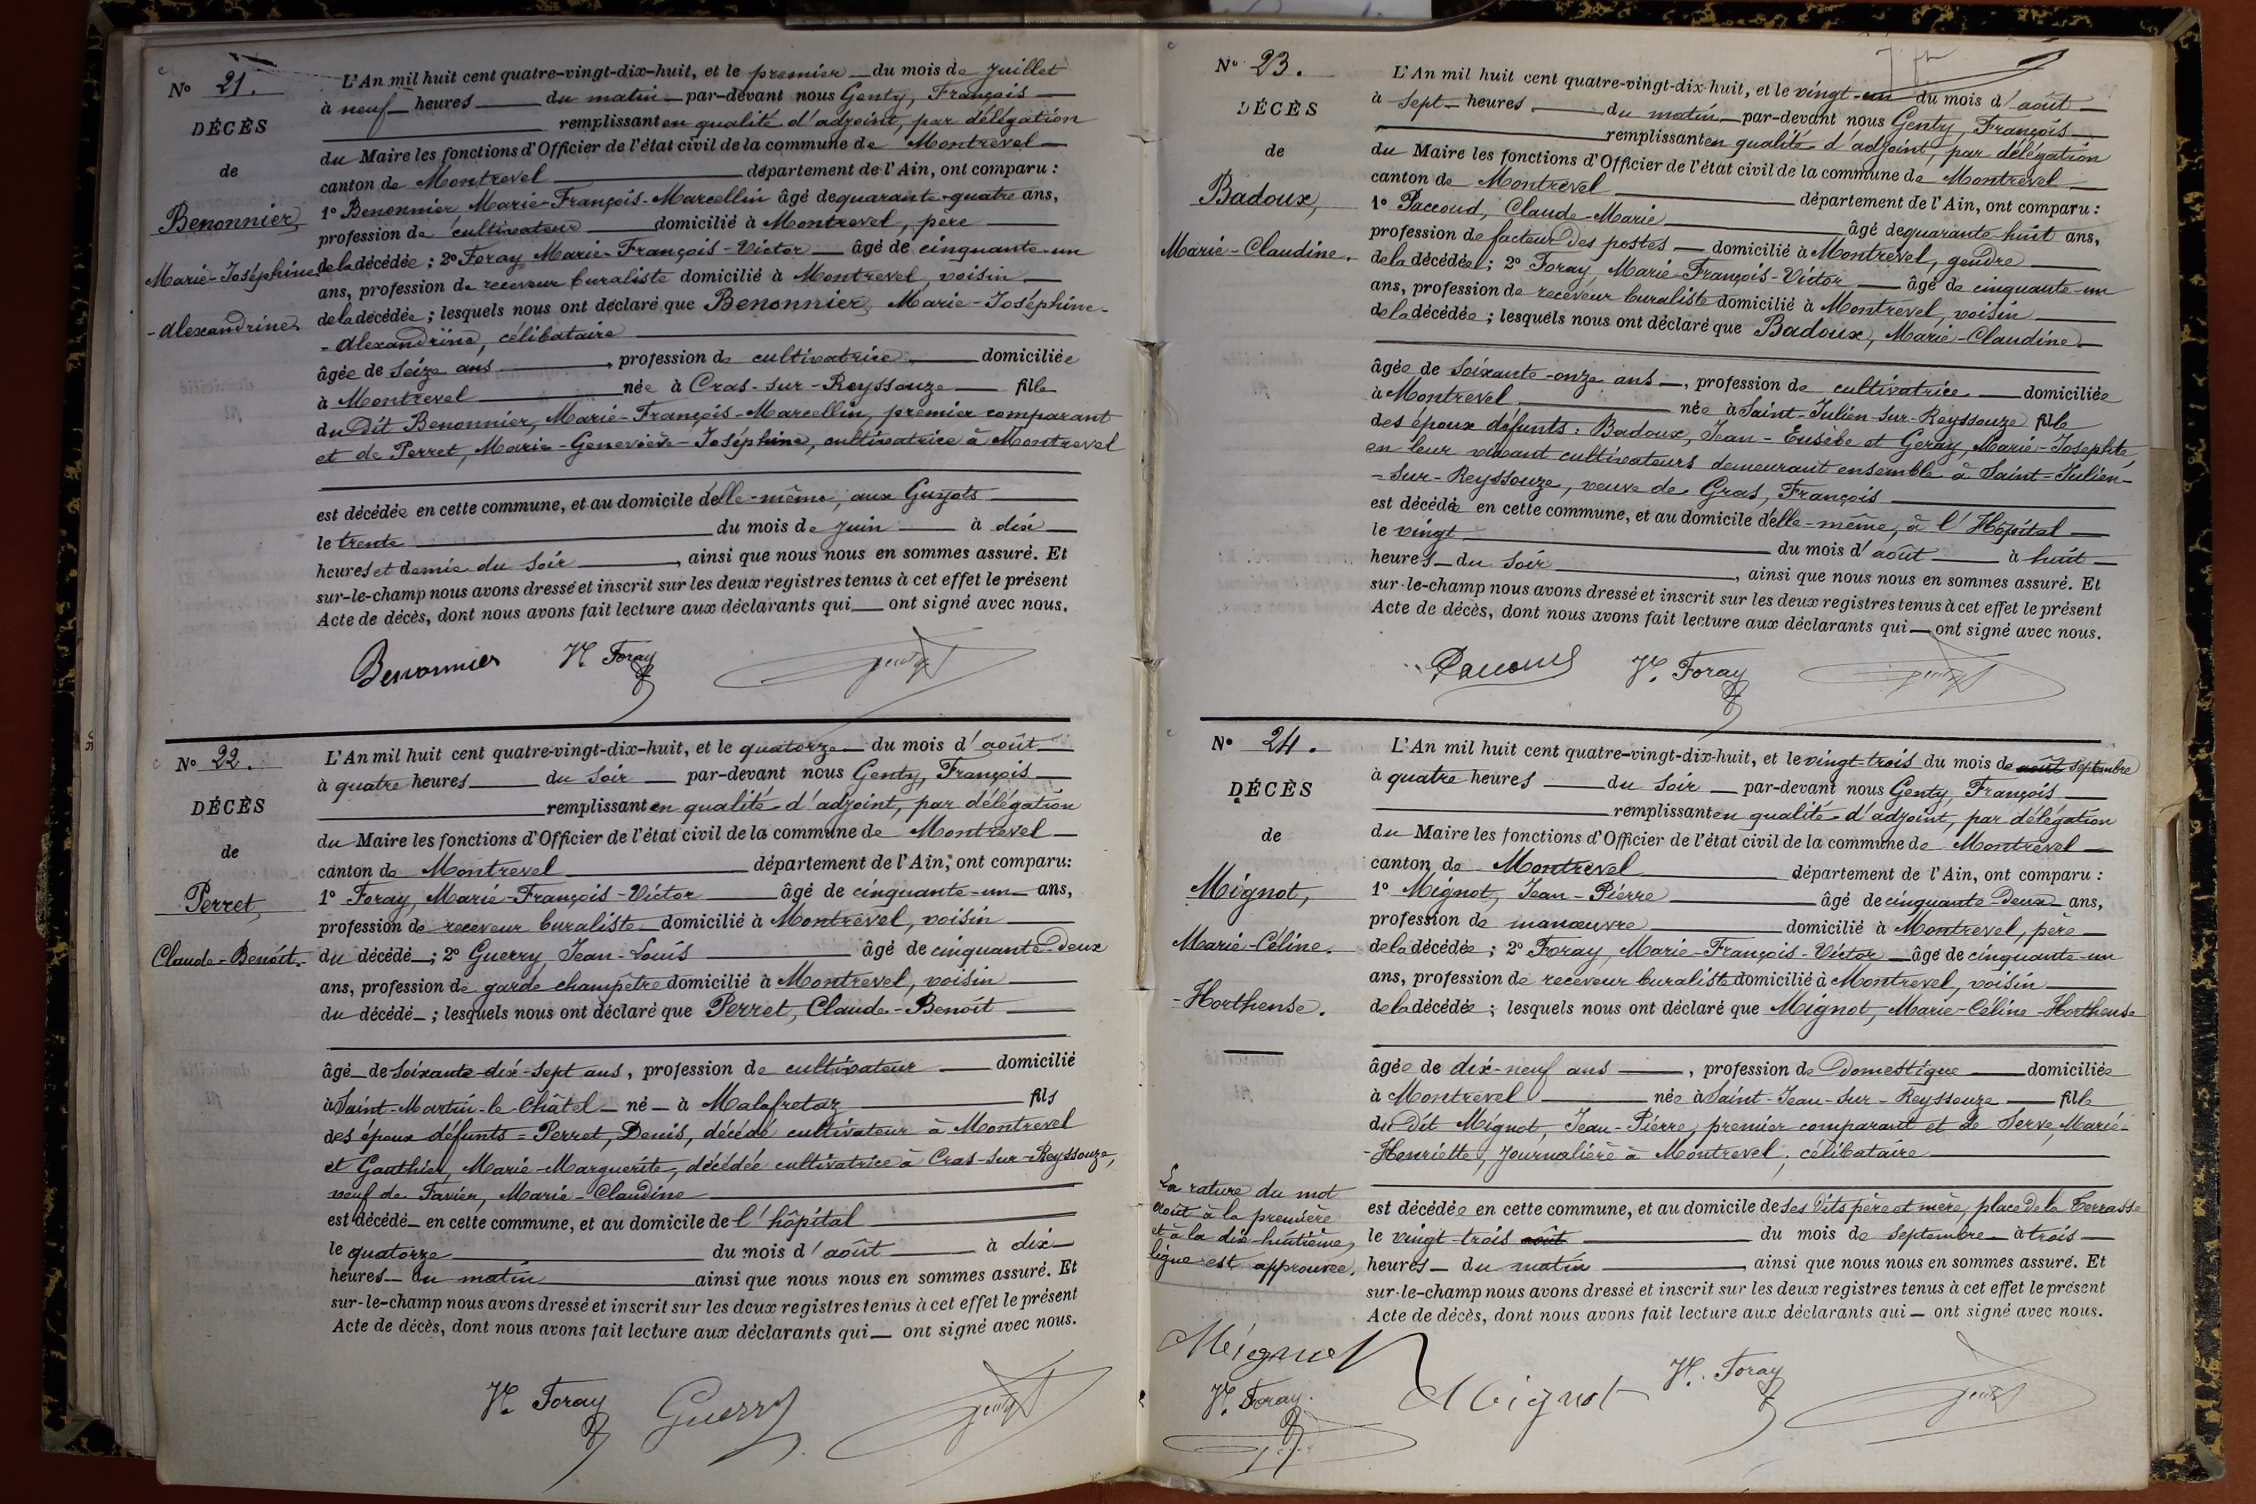 N° 21.
DÉCÈS
de
Benonnier,
Marie-Joséphine
-Alexandrine.
L'An mil huit cent quatre-vingt-dix-huit, et le premier du mois de Juillet
à neuf heures du matin par-devant nous Genty, François
remplissant en qualité d'adjoint, par délégation
du Maire les fonctions d'Officier de l'état civil de la commune de Montrevel
canton de Montrevel département de l'Ain, ont comparu :
1° Benonnier, Marie-François-Marcellin âgé de quarante-quatre ans,
profession de cultivateur domicilié à Montrevel, père
de la décédée ; 2° Foray Marie-François-Victor âgé de cinquante-un
ans, profession de receveur buraliste domicilié à Montrevel, voisin
de la décédée ; lesquels nous ont déclaré que Benonnier, Marie-Joséphine-
-Alexandrine, célibataire
âgée de seize ans, profession de cultivatrice domiciliée
à Montrevel née à Cras-sur-Reyssouze fille
du dit Benonnier, Marie-François-Marcellin, premier comparant
et de Perret, Marie-Geneviève-Joséphine, cultivatrice à Montrevel
est décédée en cette commune, et au domicile d'elle-même, aux Guyots
le trente du mois de Juin à dix
heures et demie du soir, ainsi que nous nous en sommes assuré. Et
sur-le-champ nous avons dressé et inscrit sur les deux registres tenus à cet effet le présent
Acte de décès, dont nous avons fait lecture aux déclarants qui ont signé avec nous.
Benonnier Vr Foray Genty
N° 22.
DÉCÈS
de
Perret,
Claude-Benoît.
L'An mil huit cent quatre-vingt-dix-huit, et le quatorze du mois d'août
à quatre heures du soir par-devant nous Genty, François
remplissant en qualité d'adjoint, par délégation
du Maire les fonctions d'Officier de l'état civil de la commune de Montrevel
canton de Montrevel département de l'Ain, ont comparu :
1° Foray, Marie-François-Victor âgé de cinquante-un ans,
profession de receveur buraliste domicilié à Montrevel, voisin
du décédé ; 2° Guerry Jean-Louis âgé de cinquante-deux
ans, profession de garde champêtre domicilié à Montrevel, voisin
du décédé ; lesquels nous ont déclaré que Perret, Claude-Benoît
âgé de soixante-dix-sept ans, profession de cultivateur domicilié
à Saint-Martin-le-Châtel né à Malafretaz fils
des époux défunts = Perret, Denis, décédé cultivateur à Montrevel
et Gauthier, Marie-Marguerite, décédée cultivatrice à Cras-sur-Reyssouze,
veuf de Favier, Marie-Claudine
est décédé en cette commune, et au domicile de l'hôpital
le quatorze du mois d'août à dix
heures du matin ainsi que nous nous en sommes assuré. Et
sur-le-champ nous avons dressé et inscrit sur les deux registres tenus à cet effet le présent
Acte de décès, dont nous avons fait lecture aux déclarants qui ont signé avec nous.
Vr Foray Guerry Genty
N° 23.
DÉCÈS
de
Badoux,
Marie-Claudine.
L'An mil huit cent quatre-vingt-dix-huit, et le vingt-un du mois d'août
à sept heures du matin par-devant nous Genty, François
remplissant en qualité d'adjoint, par délégation
du Maire les fonctions d'Officier de l'état civil de la commune de Montrevel
canton de Montrevel département de l'Ain, ont comparu :
1° Paccoud, Claude-Marie âgé de quarante-huit ans,
profession de facteur des postes domicilié à Montrevel, gendre
de la décédée ; 2° Foray Marie-François-Victor âgé de cinquante-un
ans, profession de receveur buraliste domicilié à Montrevel, voisin
de la décédée ; lesquels nous ont déclaré que Badoux, Marie-Claudine
âgée de soixante-onze ans, profession de cultivatrice domiciliée
à Montrevel née à Saint-Julien-sur-Reyssouze fille
des époux défunts : Badoux, Jean-Eusèbe et Geray, Marie-Josephte,
en leur vivant cultivateurs demeurant ensemble à Saint-Julien-
-sur-Reyssouze, veuve de Gras, François
est décédée en cette commune, et au domicile d'elle-même, à l'Hôpital
le vingt du mois d'août à huit
heures du soir, ainsi que nous nous en sommes assuré. Et
sur-le-champ nous avons dressé et inscrit sur les deux registres tenus à cet effet le présent
Acte de décès, dont nous avons fait lecture aux déclarants qui ont signé avec nous.
Paccoud Vr. Foray Genty
N° 24.
DÉCÈS
de
Mignot,
Marie-Céline.
-Horthense.
L'An mil huit cent quatre-vingt-dix-huit, et le vingt-trois du mois de août septembre
à quatre heures du soir par-devant nous Genty, François
remplissant en qualité d'adjoint, par délégation
du Maire les fonctions d'Officier de l'état civil de la commune de Montrevel
canton de Montrevel département de l'Ain, ont comparu :
1° Mignot, Jean-Pierre âgé de cinquante-deux ans,
profession de manœuvre domicilié à Montrevel, père
de la décédée ; 2° Foray, Marie-François-Victor âgé de cinquante-un
ans, profession de receveur buraliste domicilié à Montrevel, voisin
de la décédée ; lesquels nous ont déclaré que Mignot, Marie-Céline-Horthense
âgée de dix-neuf ans, profession de domestique domiciliée
à Montrevel née à Saint-Jean-sur-Reyssouze fille
du dit Mignot, Jean-Pierre, premier comparant et de Serve, Marie-
-Henriette, journalière à Montrevel ; célibataire
est décédée en cette commune, et au domicile de ses dits père et mère, place de la Terrasse
le vingt-trois août du mois de septembre à trois
heures du matin, ainsi que nous nous en sommes assuré. Et
sur-le-champ nous avons dressé et inscrit sur les deux registres tenus à cet effet le présent
Acte de décès, dont nous avons fait lecture aux déclarants qui ont signé avec nous.
La rature du mot
août à la première
et à la dix-huitième
ligne est approuvée.
Mignot
Vr. Foray.
Mignot Vr. Foray Genty